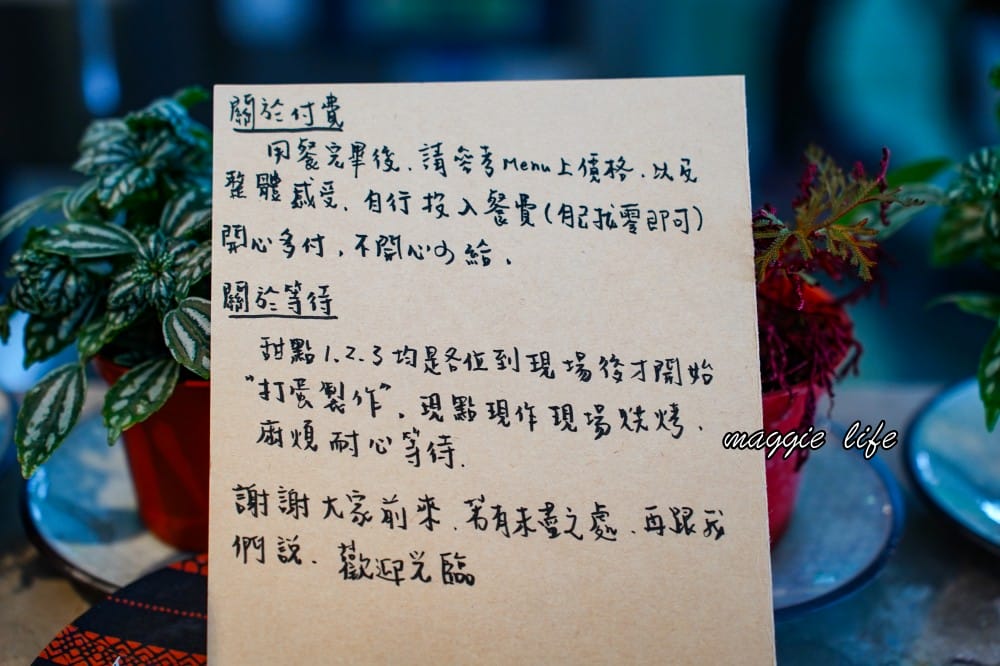 關於付費
用餐完畢後、請參考Menu上價格、以及
整體感受、自行投入餐費(自己找零即可)
開心多付，不開心少給。
關於等待
甜點1.2.3均是各位到現場後才開始
"打蛋製作"，現點現作現場烘烤、
麻煩耐心等待.
謝謝大家前來、若有未盡之處、再跟我
們說. 歡迎光臨
maggie life